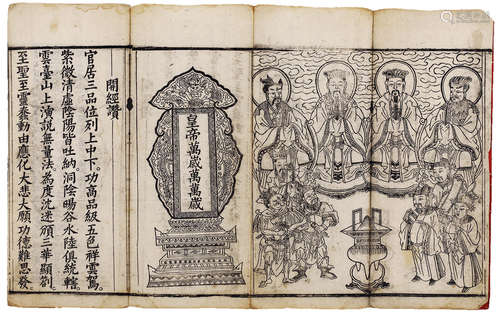 皇帝萬歲萬萬歲
開經讚
官居三品位列上中下。功高品級五色祥雲駕
紫微清虛陰陽皆吐納。洞陰暘谷水陸俱統轄
雲臺山上演說無量法為度沈迷頒三華顯劄
至聖至靈蠢動由應化大悲大願功德難思發